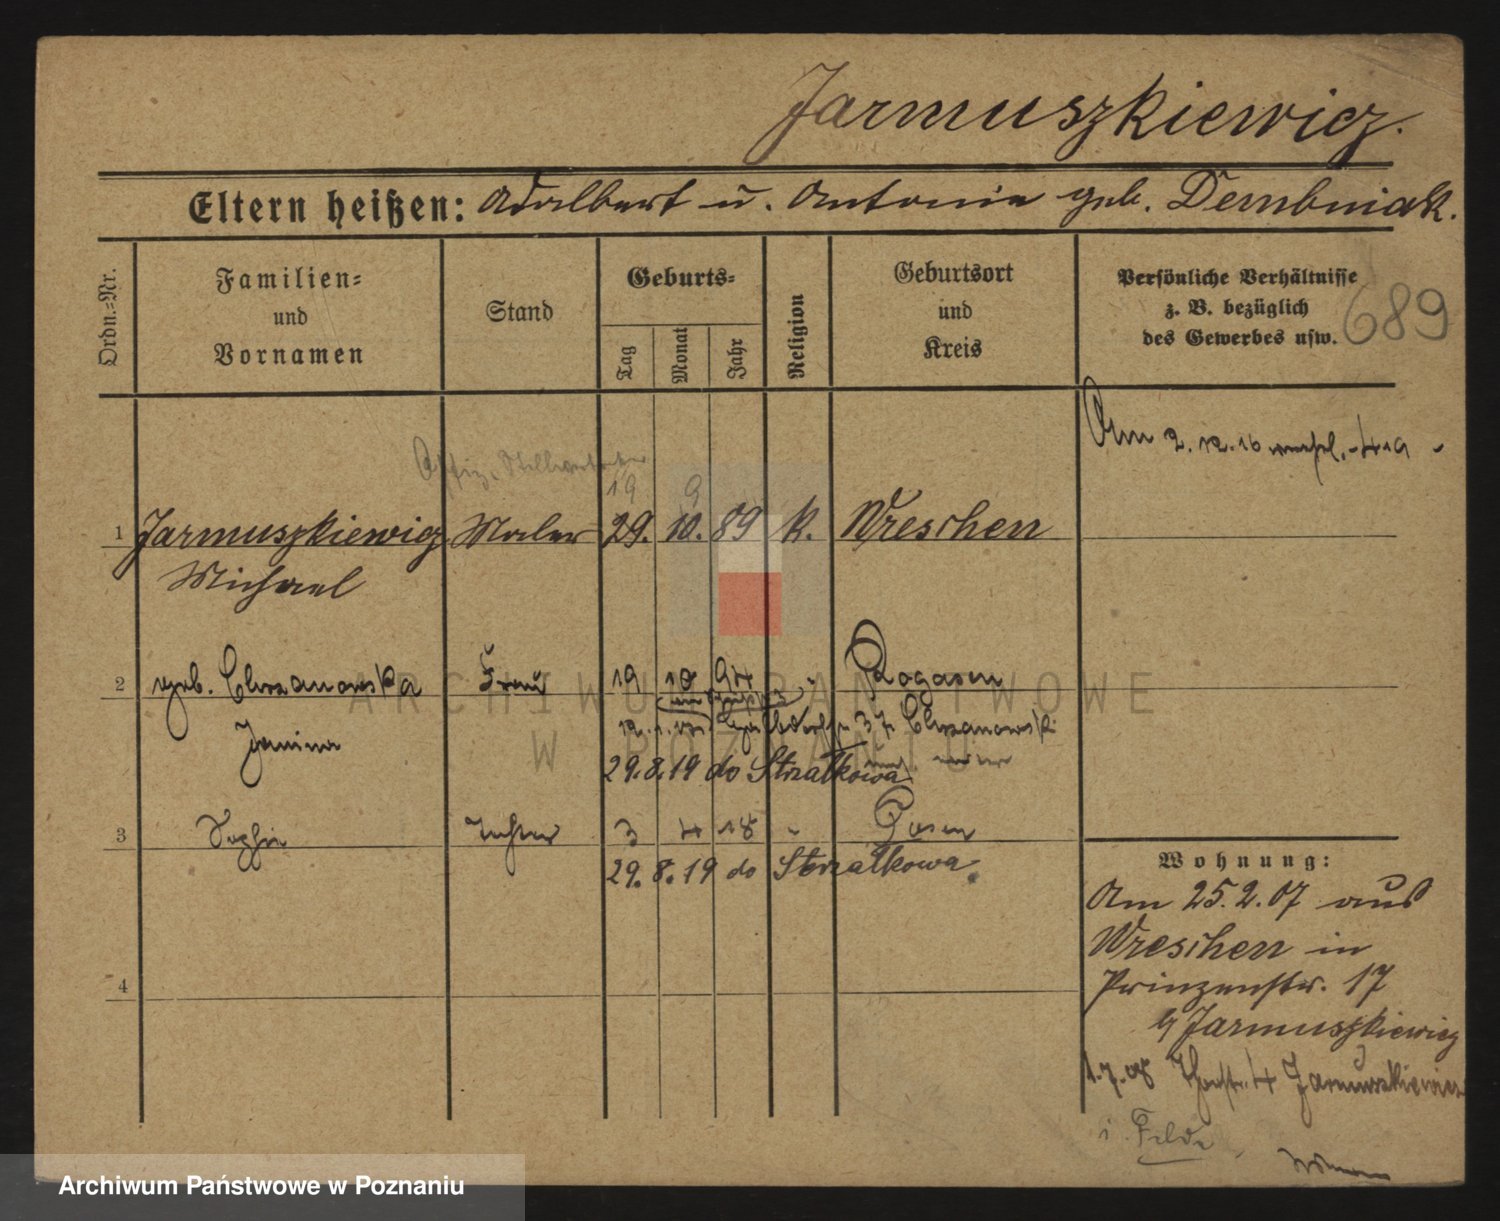 Jarmuszkiewicz.
Eltern heißen: Adalbert u. Antonie geb. Dembniak.
Ordn.=Nr.
Familien=
und
Vornamen
Stand
Geburts=
Tag
Monat
Jahr
Religion
Geburtsort
und
Kreis
Persönliche Verhältnisse
z. B. bezüglich
des Gewerbes usw.
689
Am 2. 12. 16
19 9
1 Jarmuszkiewicz Maler 29. 10. 89 k. Wreschen
Michael
2 geb. Chrzanowska Frau 19 10 94 " Rogasen
Janina
Chrzanowski
29.8.19 do Strzałkowa
3 Sophie Tochter 3 4 18 " Posen
29.8.19 do Strzałkowa
4
Wohnung:
Am 25.2.07 aus
Wreschen in
Prinzenstr. 17
b/ Jarmuszkiewicz
1.7.08 4 Jarmuszkiewicz
i. Felde
ARCHIWUM PAŃSTWOWE
W POZNANIU
Archiwum Państwowe w Poznaniu